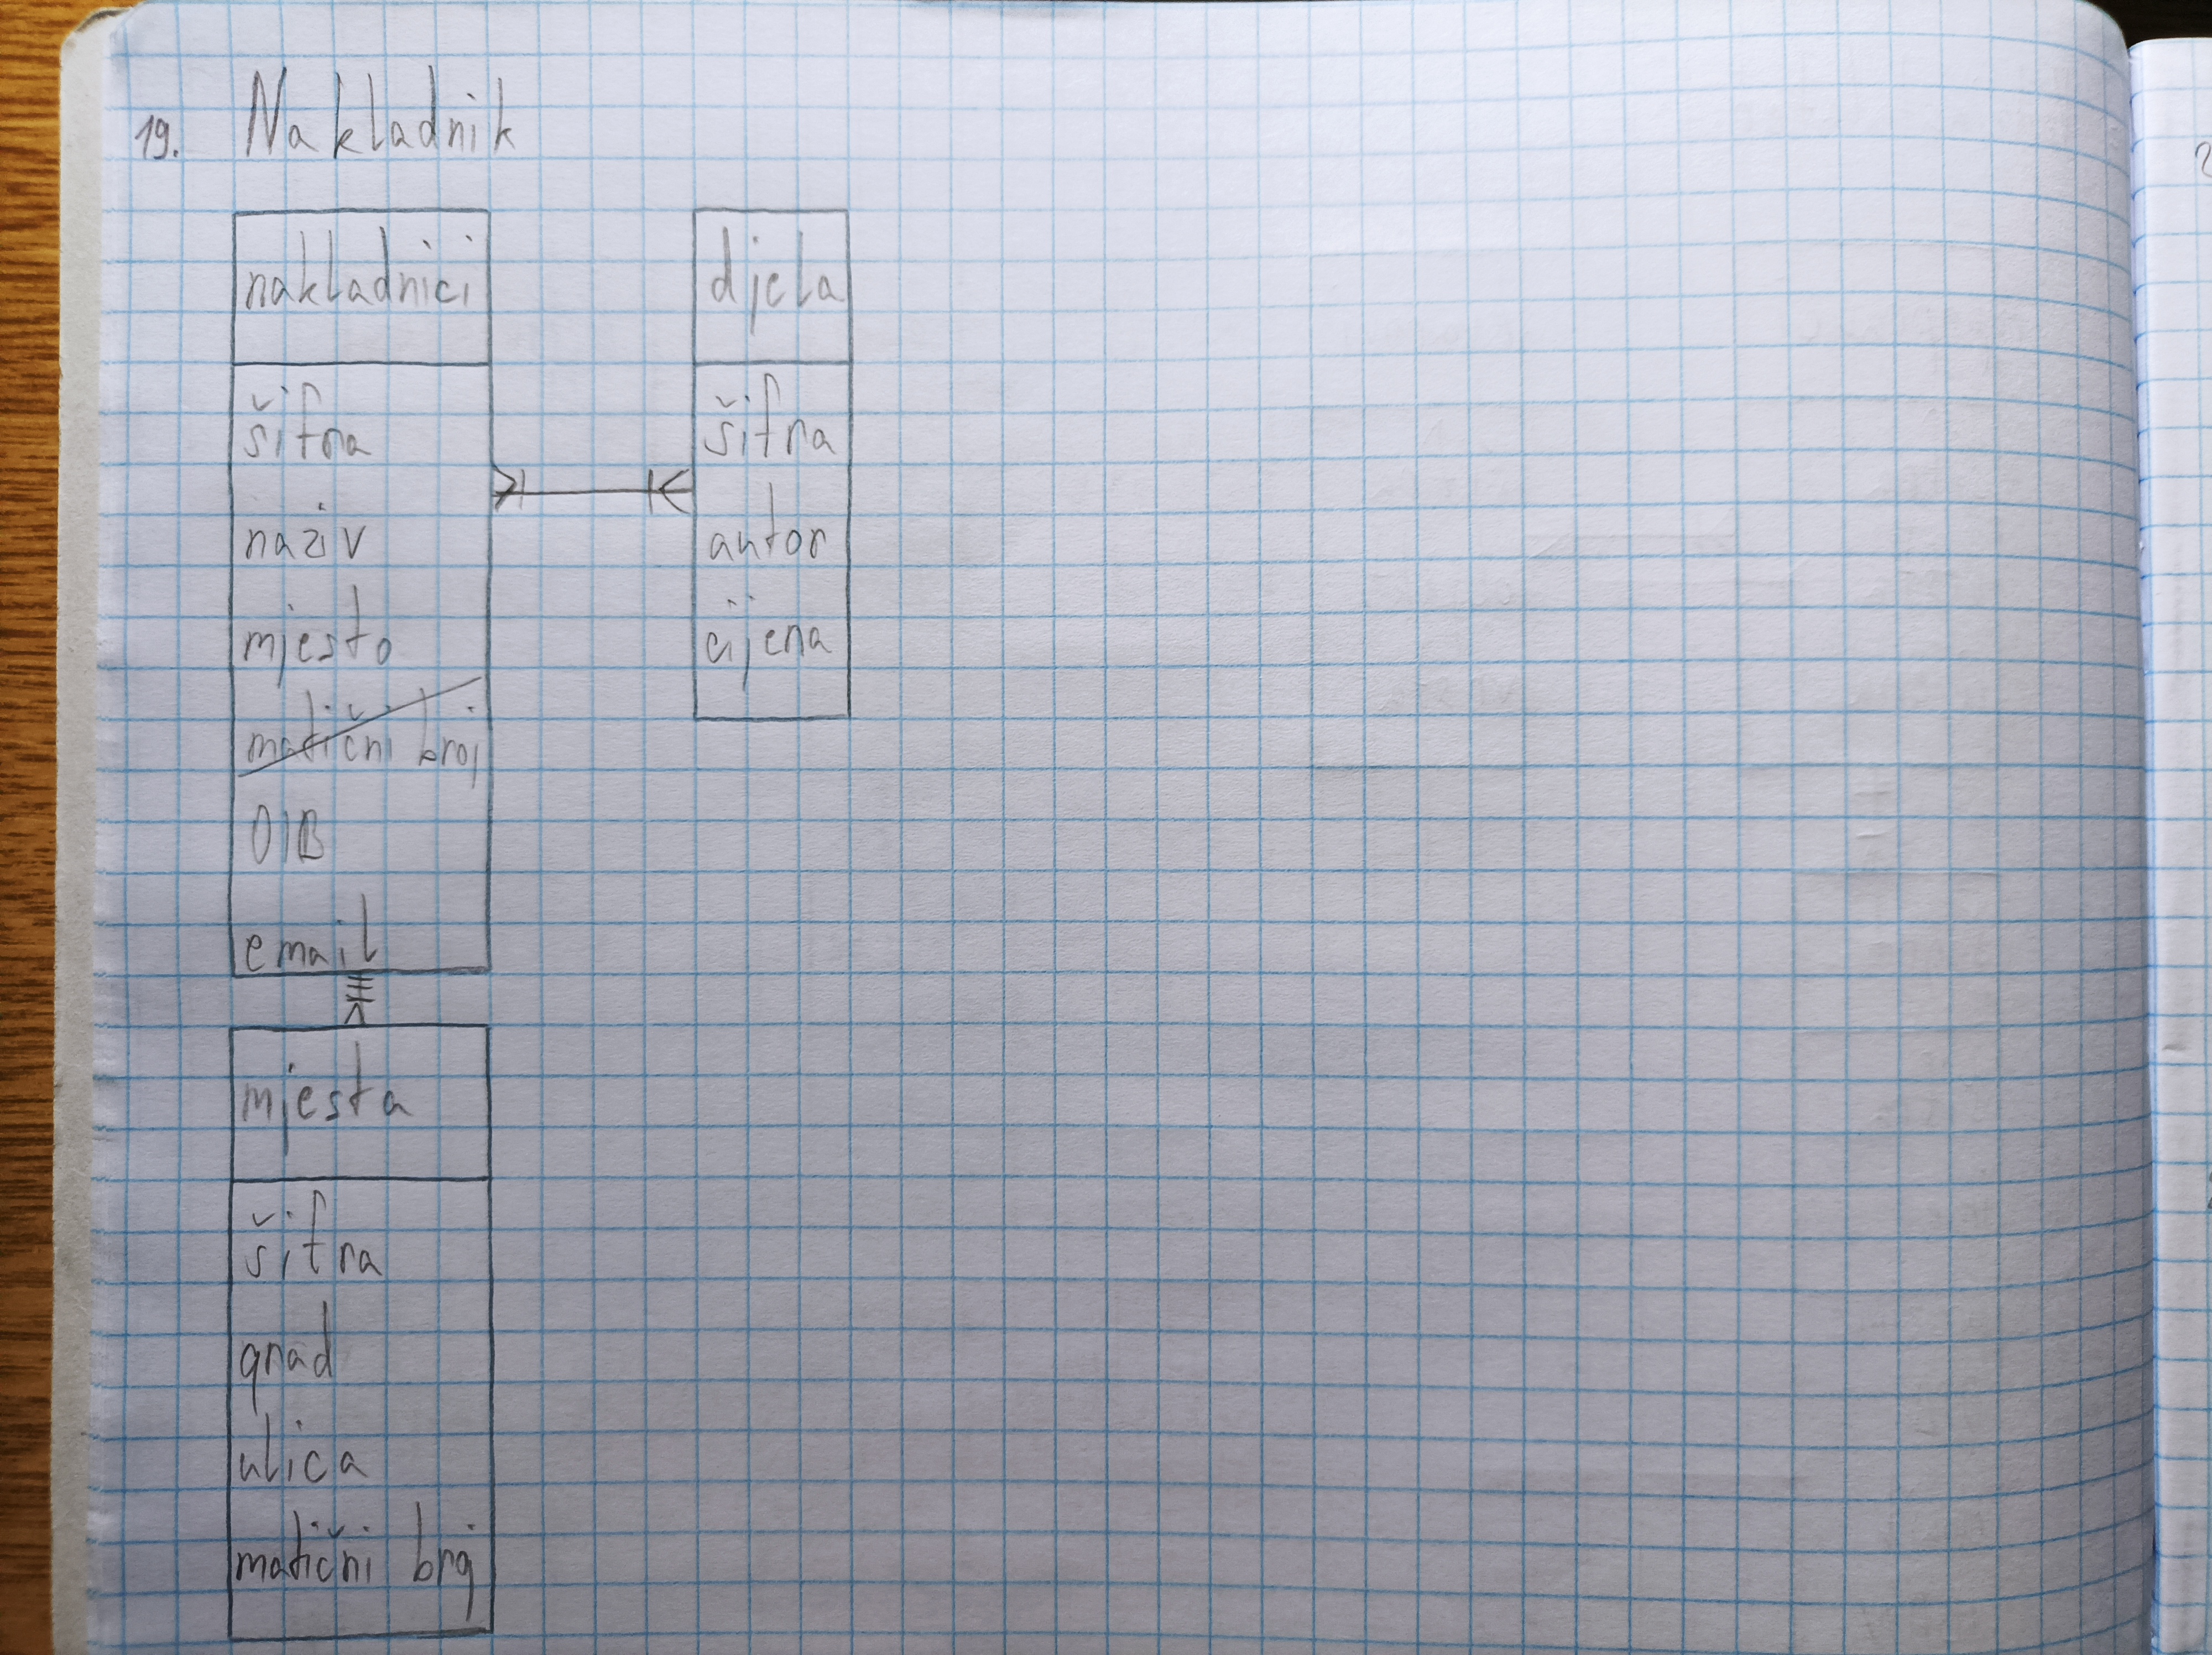 19. Nakladnik
nakladnici
šifra
naziv
mjesto
matični broj
OIB
email
djela
šifra
autor
cijena
mjesta
šifra
grad
ulica
matični broj